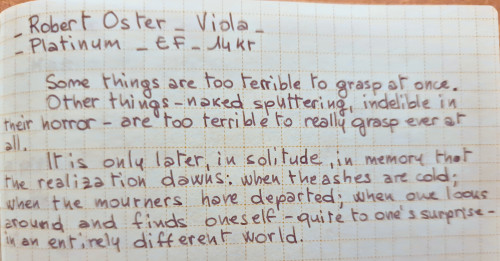 - Robert Oster - Viola -
- Platinum - EF - 14kt
Some things are too terrible to grasp at once.
Other things - naked sputtering, indelible in
their horror - are too terrible to really grasp ever at
all.
It is only later, in solitude, in memory that
the realization dawns: when the ashes are cold;
when the mourners have departed; when one looks
around and finds oneself - quite to one's surprise -
in an entirely different world.